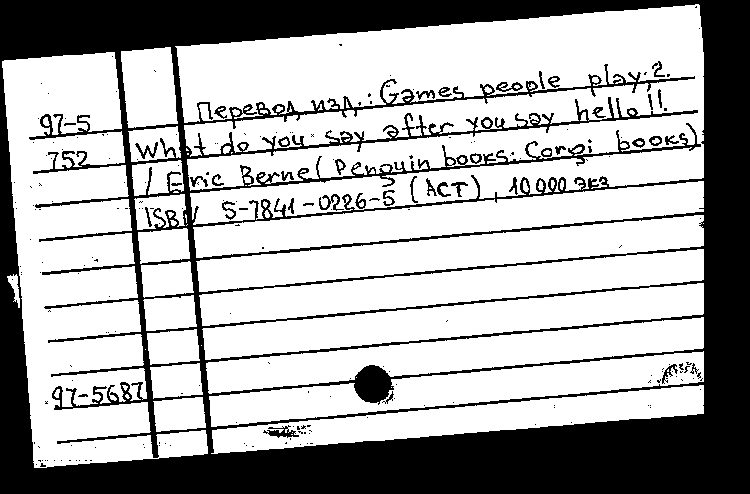 97-5 Перевод изд.: Games people play; 2.
752 What do you say after you say hello!!.
/ Eric Berne (Penguin books: Corgi books):
ISBN 5-7841-0226-5 (АСТ), 10 000 экз
97-5687